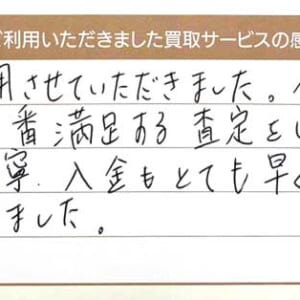 ご利用いただきました買取サービスの感
用させていただきました。
番満足する査定をし
寧、入金もとても早く
ました。